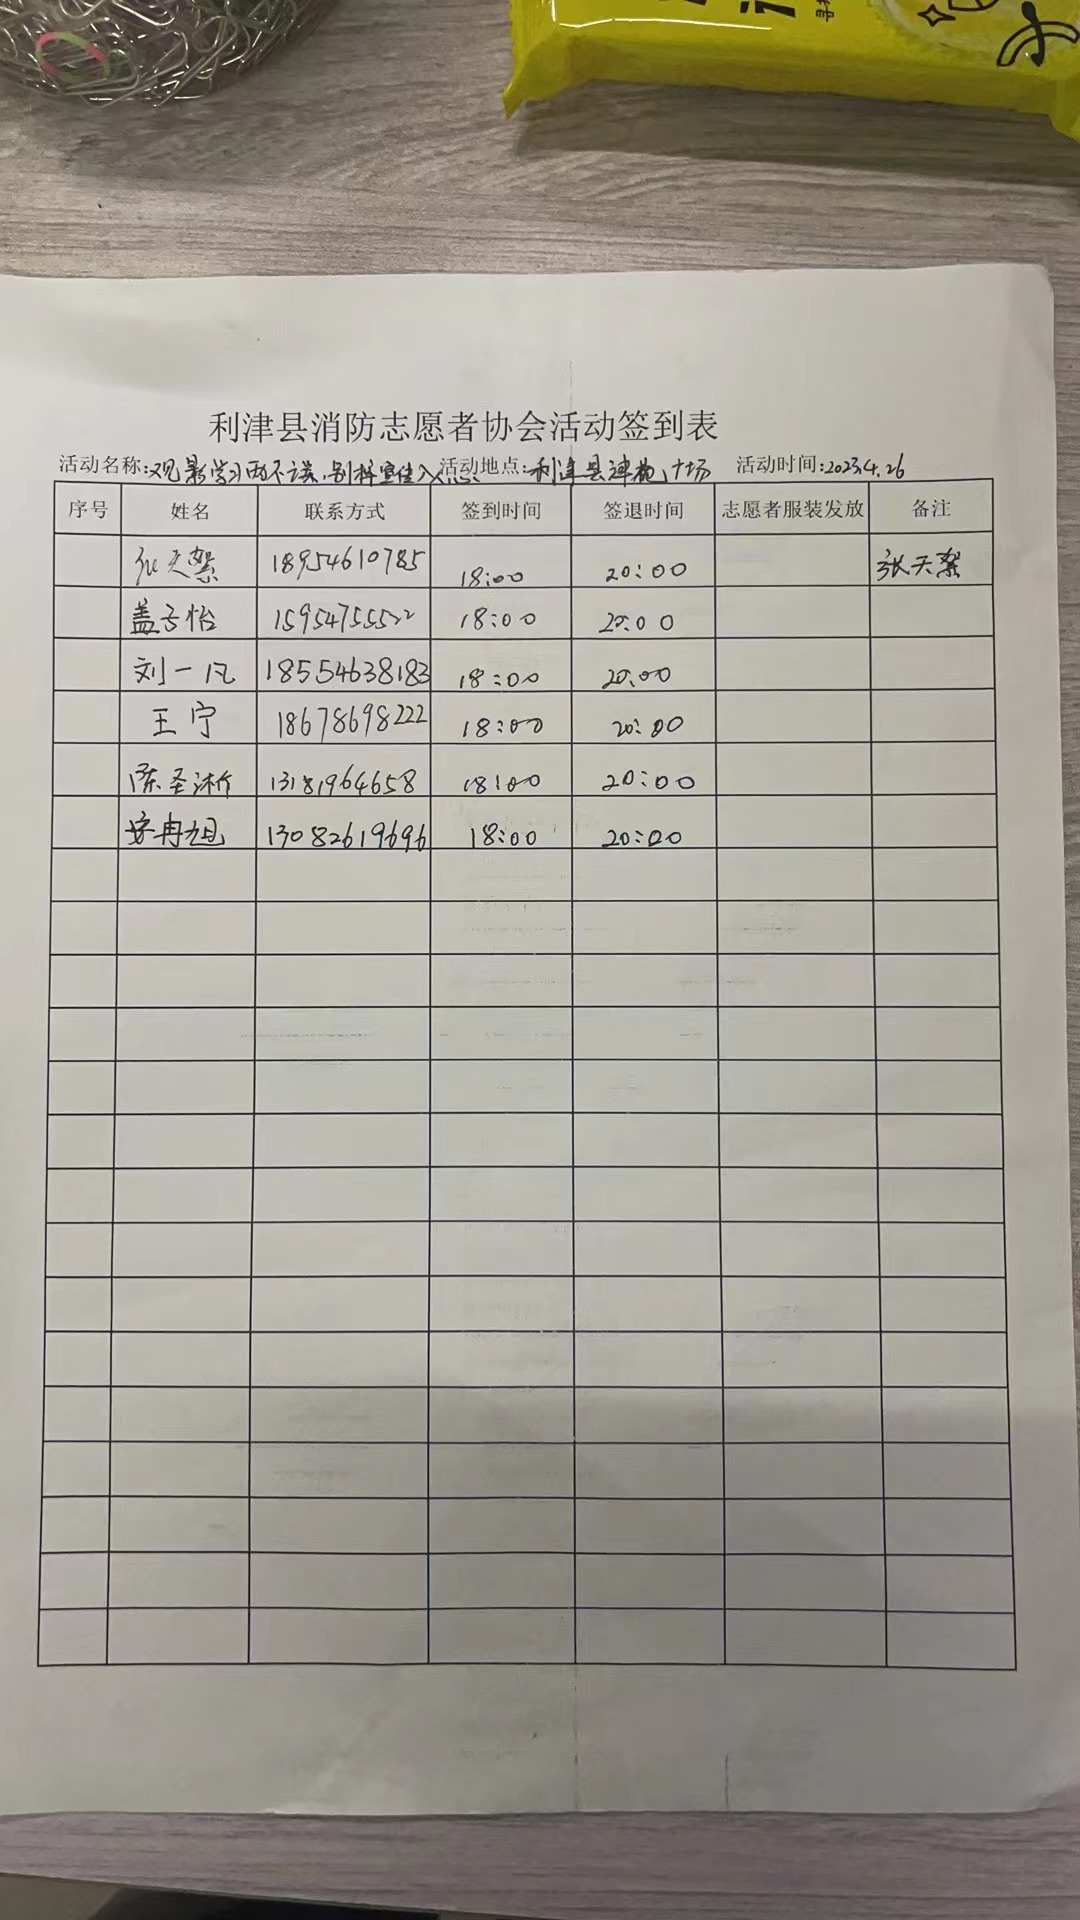 利津县消防志愿者协会活动签到表
活动名称:观影学习两不误,别样宣传入人心 活动地点:利津县津苑广场 活动时间:2023.4.26
序号 姓名 联系方式 签到时间 签退时间 志愿者服装发放 备注
张天絮 18954610785 18:00 20:00 张天絮
盖子怡 15954755522 18:00 20:00
刘一凡 18554638183 18:00 20:00
王宁 18678698222 18:00 20:00
陈圣淅 13181964658 18:00 20:00
安冉旭 13082619696 18:00 20:00